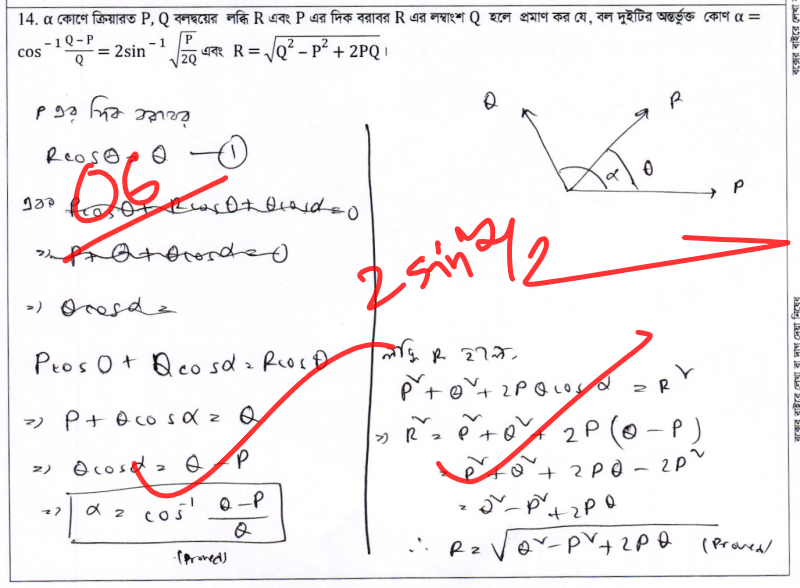 14. α কোণে ক্রিয়ারত P, Q বলদ্বয়ের লব্ধি R এবং P এর দিক বরাবর R এর লম্বাংশ Q হলে প্রমাণ কর যে, বল দুইটির অন্তর্ভুক্ত কোণ α =
cos⁻¹ (Q−P)/Q = 2sin⁻¹ √(P/2Q) এবং R = √(Q² − P² + 2PQ)।
P এর দিক বরাবর
Rcosθ = Q —(1)
06
Pcos0 + Qcosα = Rcosθ
=> P + Qcosα = Q
=> Qcosα = Q − P
=> α = cos⁻¹ (Q−P)/Q
(Proved)
Q
R
α
θ
P
2 sin²α/2
লব্ধি R হলে,
P² + Q² + 2PQcosα = R²
=> R² = P² + Q² + 2P(Q − P)
= P² + Q² + 2PQ − 2P²
= Q² − P² + 2PQ
∴ R = √(Q² − P² + 2PQ) (Proved)